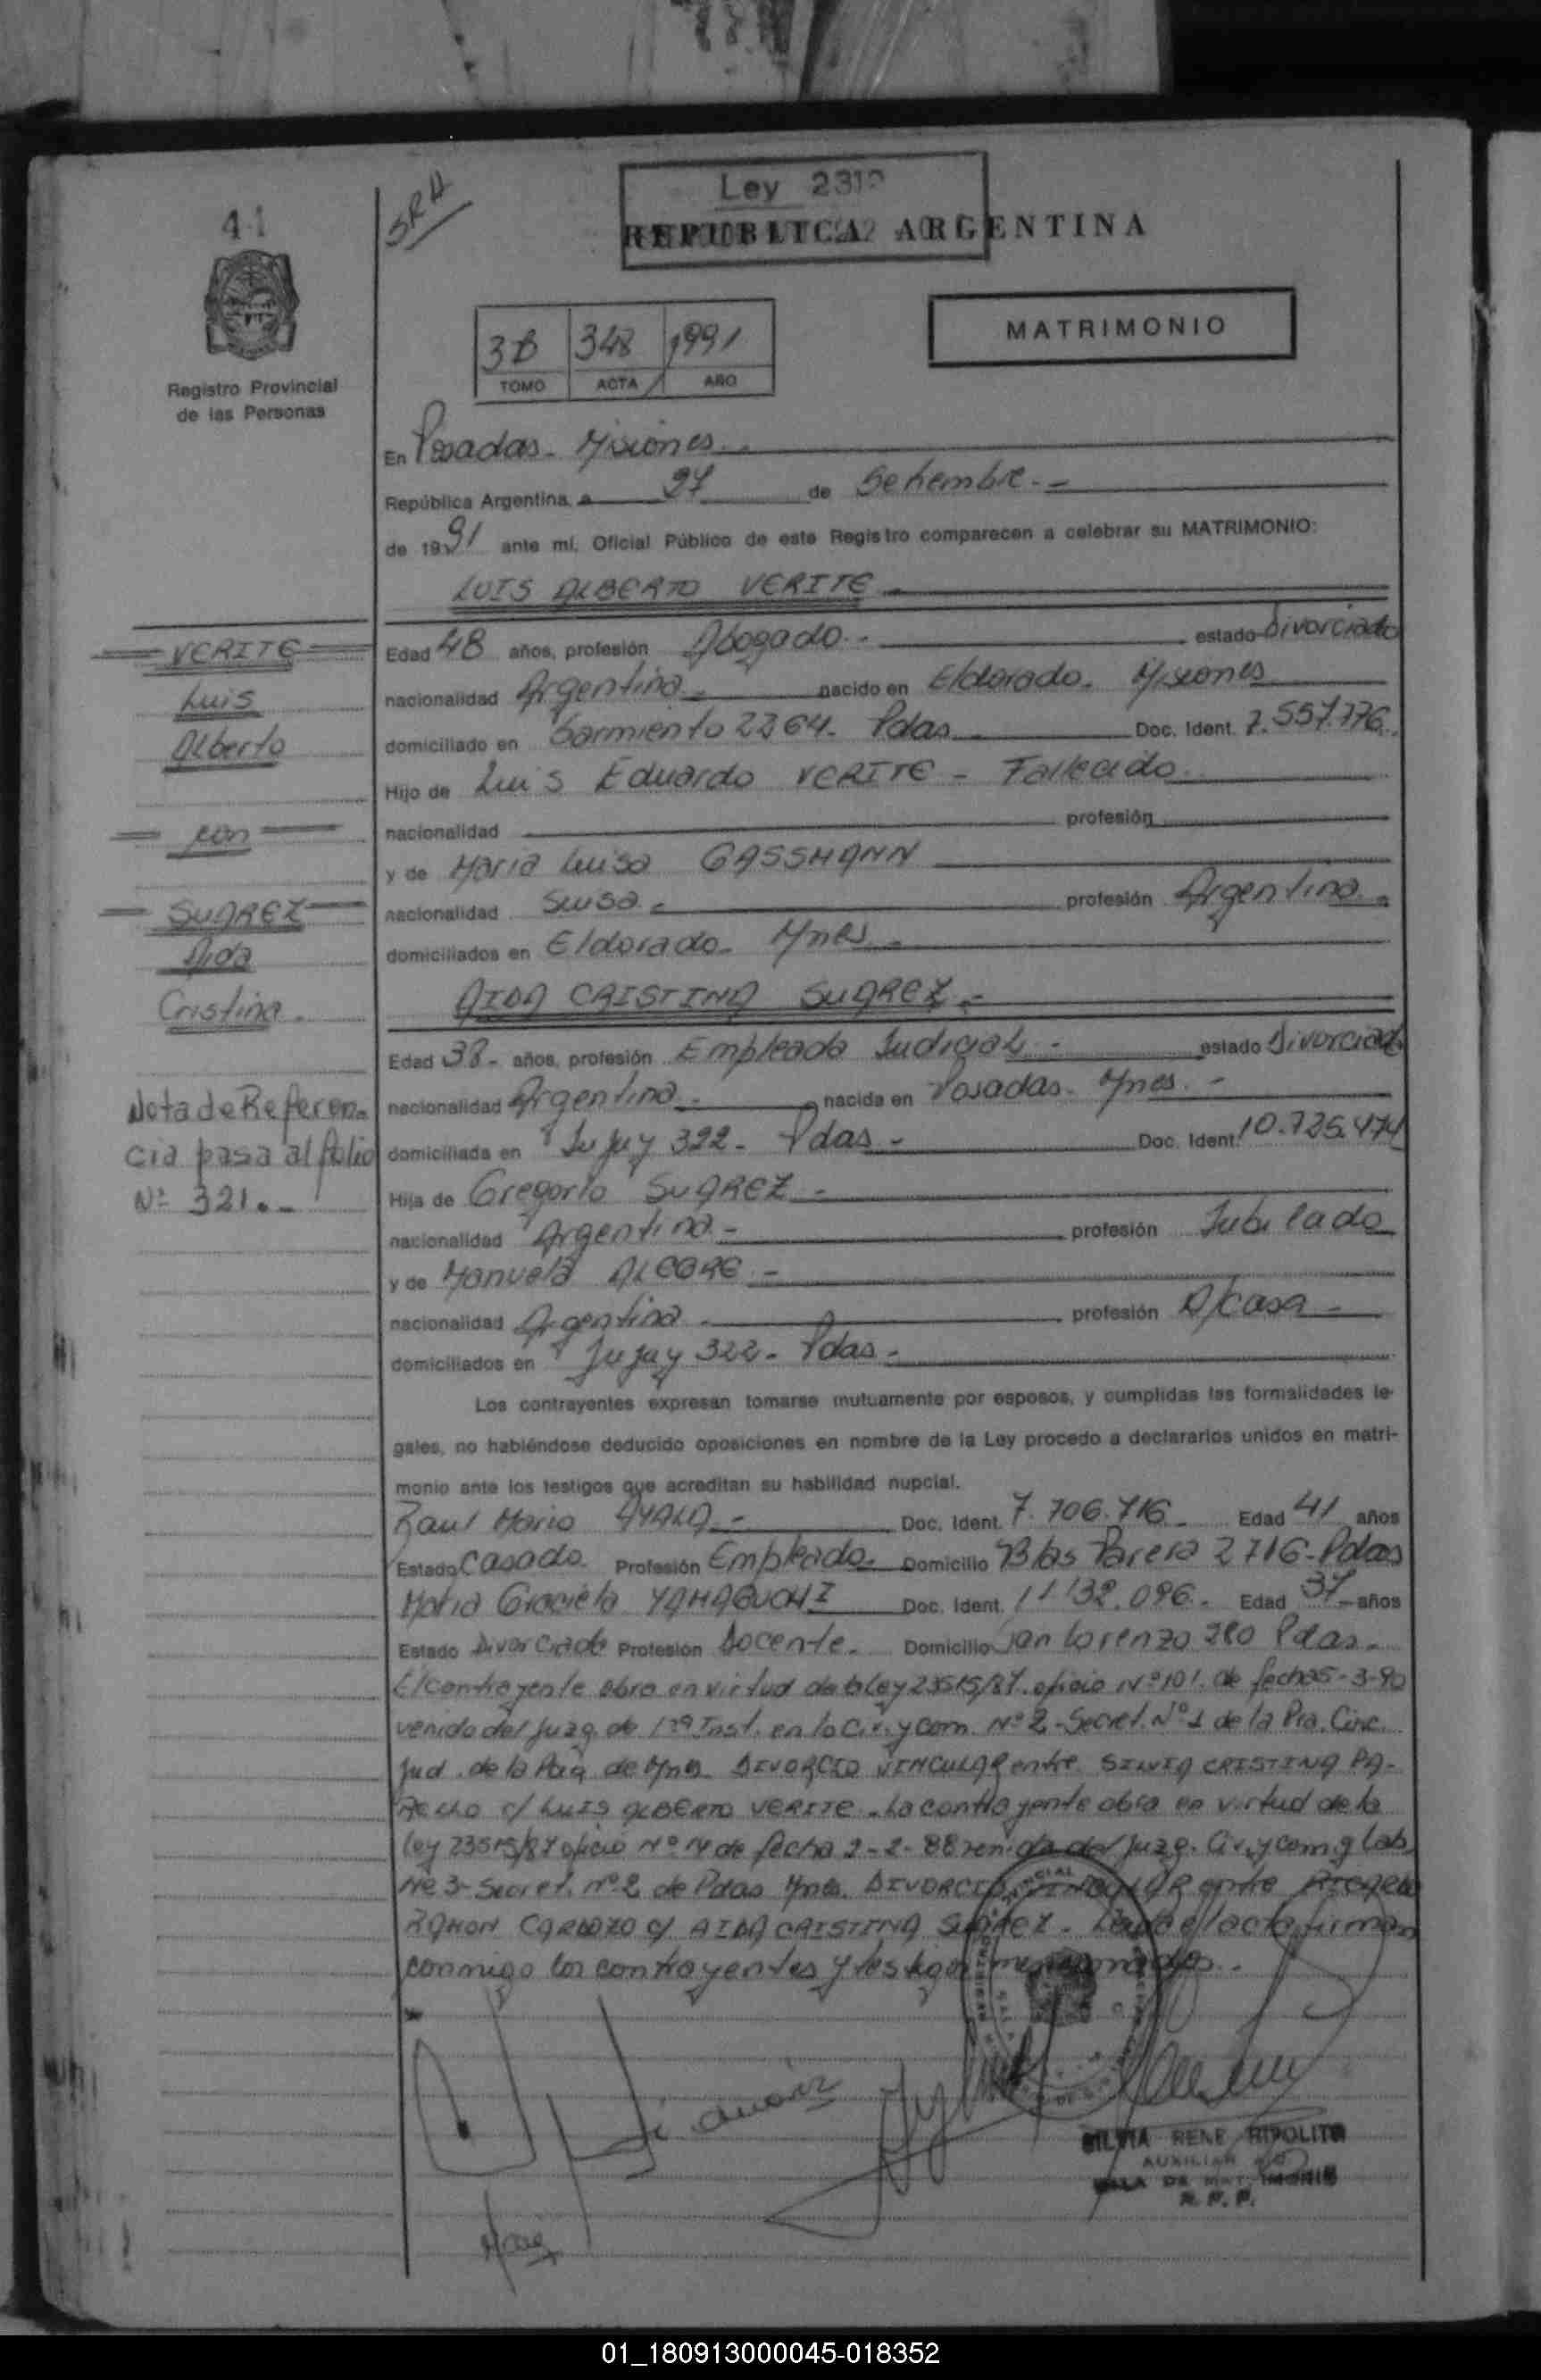 41
SRA
Ley 2312
REPUBLICA ARGENTINA
Registro Provincial
de las Personas
3B 348 1991
TOMO ACTA AÑO
MATRIMONIO
En Posadas - Misiones. -
República Argentina, a 27 de Setiembre. -
de 1991 ante mí, Oficial Público de este Registro comparecen a celebrar su MATRIMONIO:
LUIS ALBERTO VERITE
VERITE
Luis
Alberto
con
SUAREZ
Aida
Cristina.
Nota de Referen
cia pasa al folio
Nº 321. -
Edad 48 años, profesión Abogado. - estado Divorciado
nacionalidad Argentina. - nacido en Eldorado. Misiones
domiciliado en Sarmiento 2264. Pdas. Doc. Ident. 7.557.776.
Hijo de Luis Eduardo VERITE - Fallecido
nacionalidad profesión
y de Maria Luisa GASSMANN
nacionalidad Suisa. - profesión Argentina. -
domiciliados en Eldorado - Mnes -
AIDA CRISTINA SUAREZ. -
Edad 38 - años, profesión Empleada Judicial - estado Divorciad
nacionalidad Argentina. - nacida en Posadas. Mnes. -
domiciliada en Jujuy 322 - Pdas - Doc. Ident. 10.725.474
Hija de Gregorio SUAREZ -
nacionalidad Argentina - profesión Jubilado
y de Manuela ALEGRE -
nacionalidad Argentina - profesión A/casa -
domiciliados en Jujuy 322 - Pdas -
Los contrayentes expresan tomarse mutuamente por esposos, y cumplidas las formalidades le-
gales, no habiéndose deducido oposiciones en nombre de la Ley procedo a declararlos unidos en matri-
monio ante los testigos que acreditan su habilidad nupcial.
Raul Mario AYALA - Doc. Ident. 7.706.716 - Edad 41 años
Estado Casado. Profesión Empleado. Domicilio Blas Parera 2716 - Pdas
Maria Graciela YAMAGUCHI Doc. Ident. 11132.096. Edad 37 años
Estado Divorciada Profesión Docente. Domicilio San Lorenzo 280 Pdas.
El contrayente obra en virtud de la Ley 23515/87. oficio Nº 101. de fecha 5-3-90
venido del Juzg. de 1ra Inst. en lo Civ. y Com. Nº 2 - Secret. Nº 1 de la Pra. Circ.
Jud. de la Pcia de Mnes. DIVORCIO VINCULAR entre SILVIA CRISTINA PA-
c/ LUIS ALBERTO VERITE. La contrayente obra en virtud de la
ley 23515/87 oficio Nº 14 de fecha 2-2-88 venida del Juzg. Civ. y Com. y Lab.
Nº 3 - Secret. nº 2 de Pdas Mnes. DIVORCIO VINCULAR entre
RAMON CARDOZO c/ AIDA CRISTINA SUAREZ - Leida el acta firman
conmigo los contrayentes y testigos mencionados. -
SILVIA RENE RIPOLITO
AUXILIAR
SALA DE MATRIMONIO
R. P. P.
01_180913000045-018352